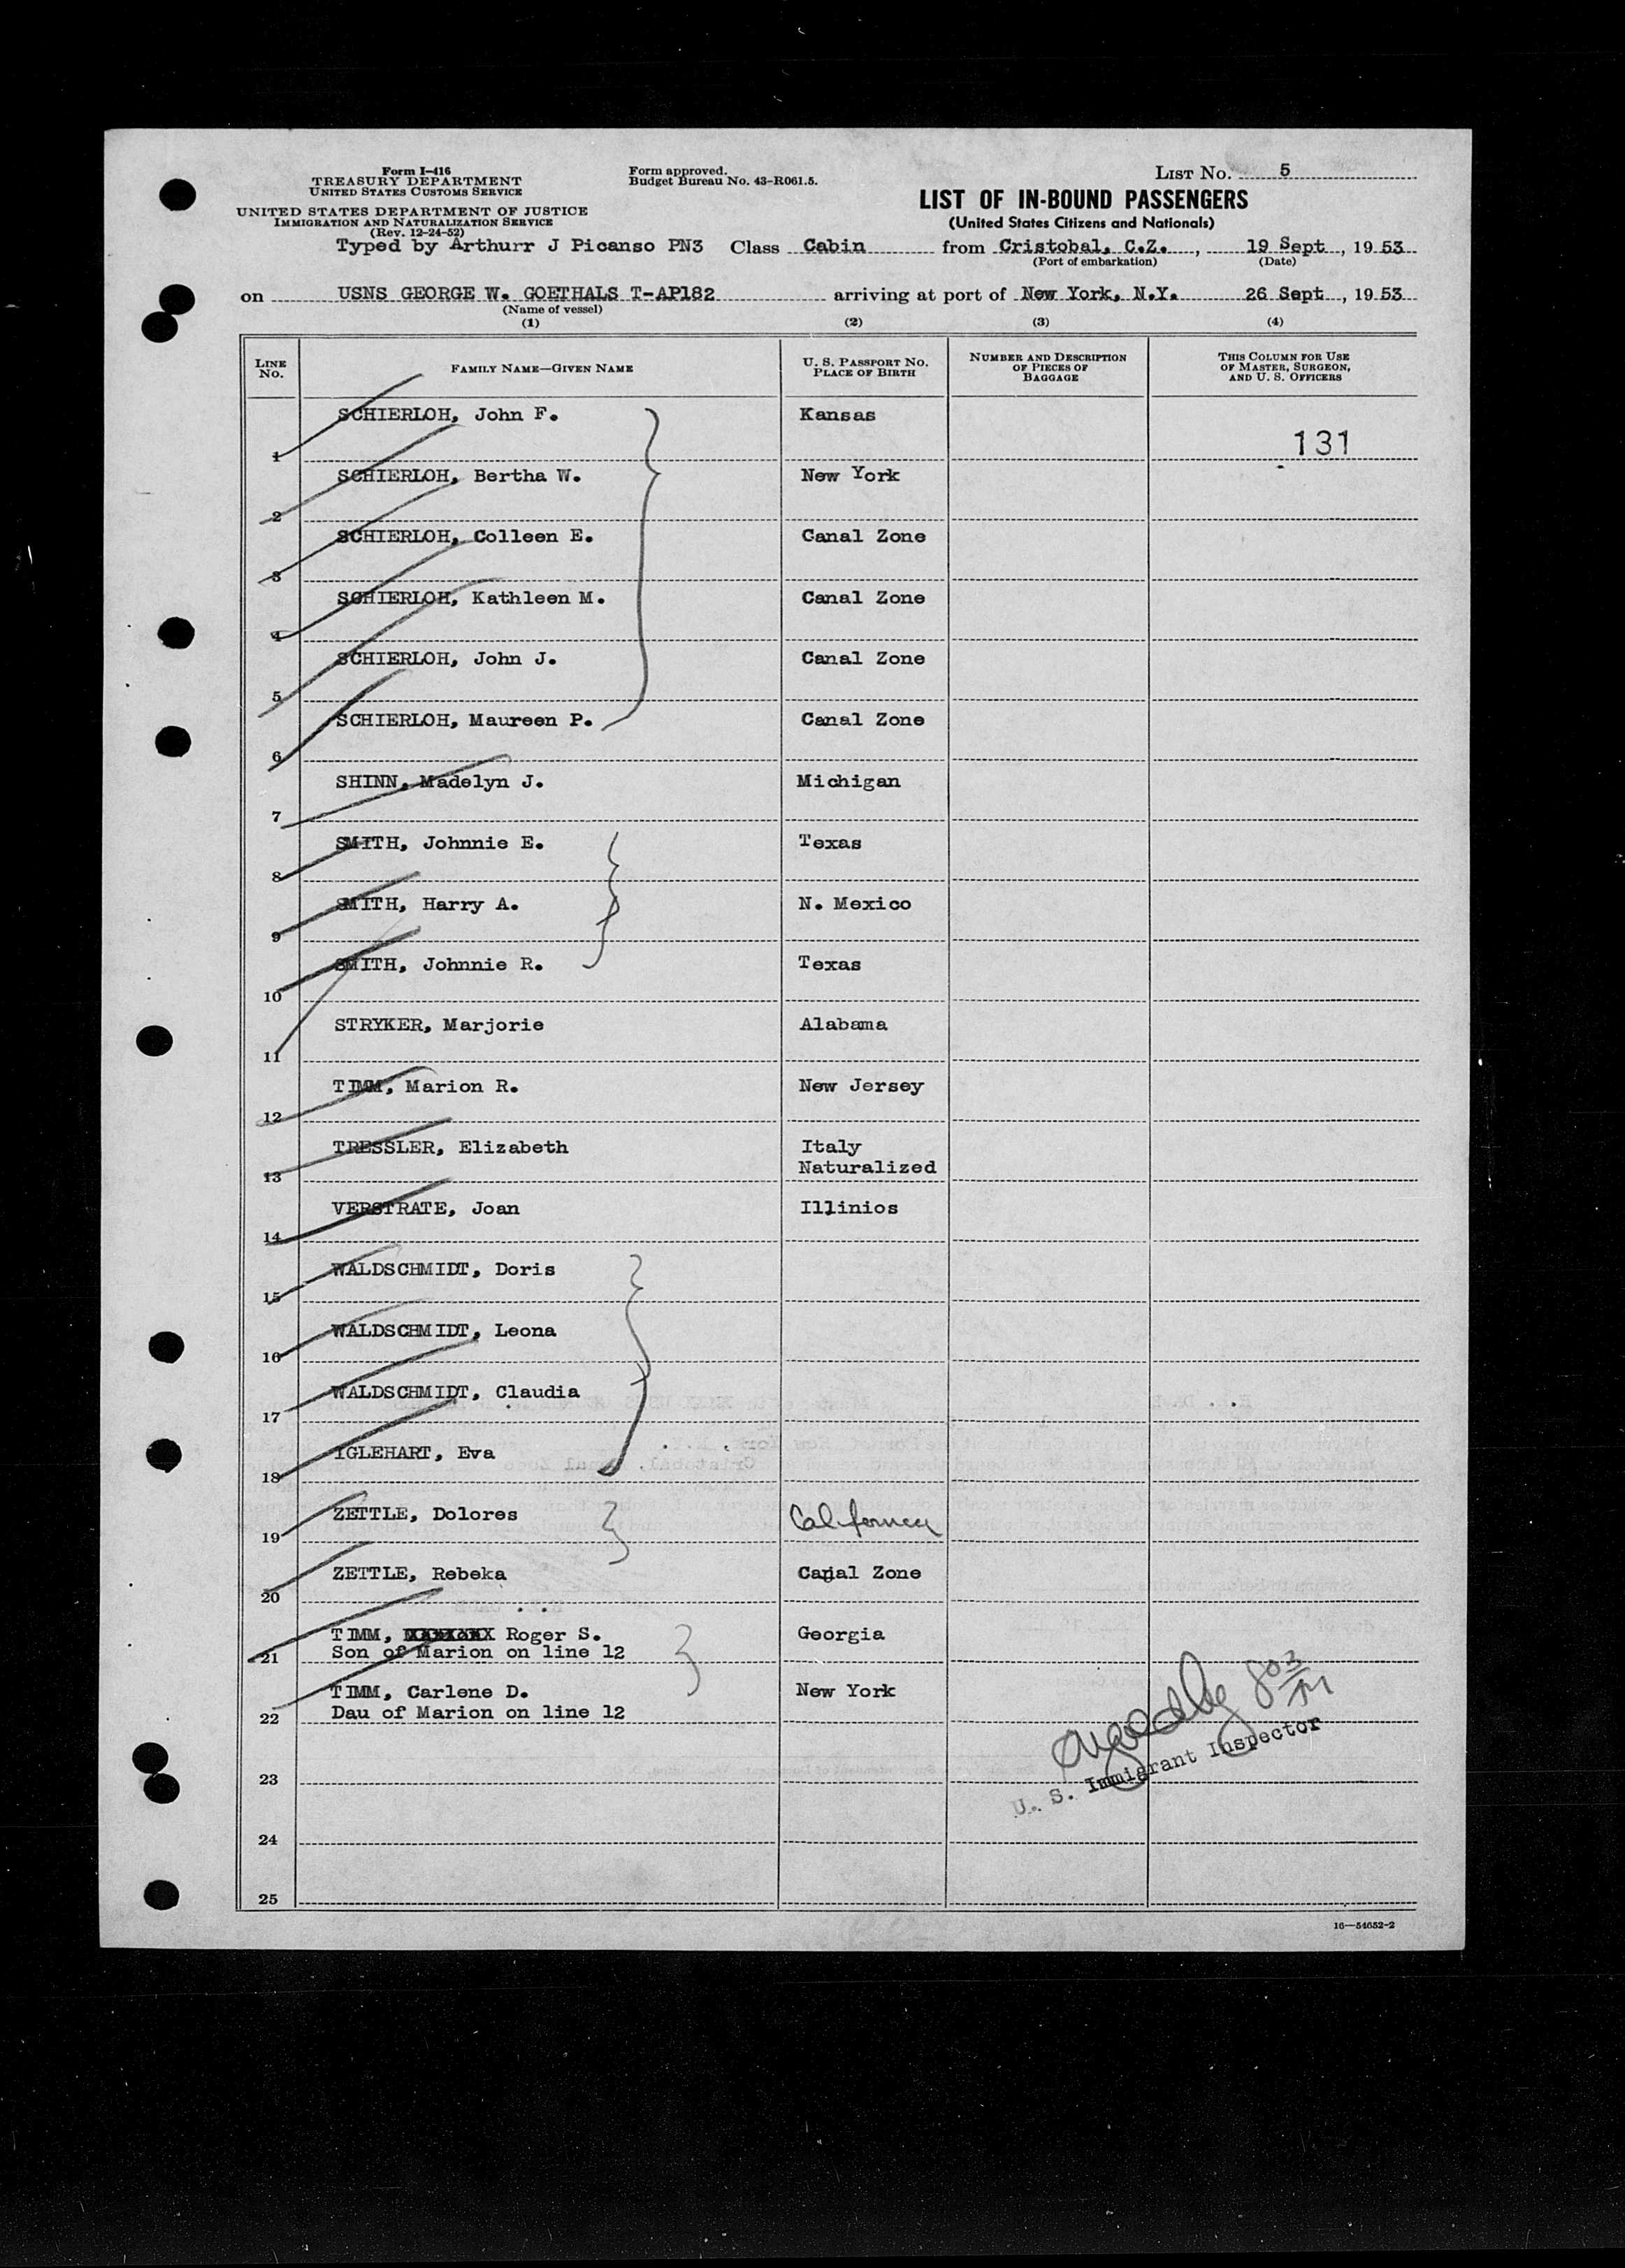 Form I-416
TREASURY DEPARTMENT
UNITED STATES CUSTOMS SERVICE
UNITED STATES DEPARTMENT OF JUSTICE
IMMIGRATION AND NATURALIZATION SERVICE
(Rev. 12-24-52)
Form approved.
Budget Bureau No. 43-R061.5.
LIST No. 5
LIST OF IN-BOUND PASSENGERS
(United States Citizens and Nationals)
Typed by Arthurr J Picanso PN3 Class Cabin from Cristobal, C.Z., 19 Sept, 1953
(Port of embarkation) (Date)
on USNS GEORGE W. GOETHALS T-AP182 arriving at port of New York, N.Y. 26 Sept, 1953
(Name of vessel)
(1) (2) (3) (4)
LINE No.
FAMILY NAME—GIVEN NAME
U. S. PASSPORT NO.
PLACE OF BIRTH
NUMBER AND DESCRIPTION
OF PIECES OF
BAGGAGE
THIS COLUMN FOR USE
OF MASTER, SURGEON,
AND U. S. OFFICERS
1 SCHIERLOH, John F. Kansas
131
2 SCHIERLOH, Bertha W. New York
3 SCHIERLOH, Colleen E. Canal Zone
4 SCHIERLOH, Kathleen M. Canal Zone
5 SCHIERLOH, John J. Canal Zone
6 SCHIERLOH, Maureen P. Canal Zone
7 SHINN, Madelyn J. Michigan
8 SMITH, Johnnie E. Texas
9 SMITH, Harry A. N. Mexico
10 SMITH, Johnnie R. Texas
11 STRYKER, Marjorie Alabama
12 TIMM, Marion R. New Jersey
13 TRESSLER, Elizabeth Italy
Naturalized
14 VERSTRATE, Joan Illinios
15 WALDSCHMIDT, Doris
16 WALDSCHMIDT, Leona
17 WALDSCHMIDT, Claudia
18 IGLEHART, Eva
19 ZETTLE, Dolores California
20 ZETTLE, Rebeka Canal Zone
21 TIMM, Roger S. Georgia
Son of Marion on line 12
22 TIMM, Carlene D. New York
Dau of Marion on line 12
U. S. Immigrant Inspector
23
24
25
16—54652-2